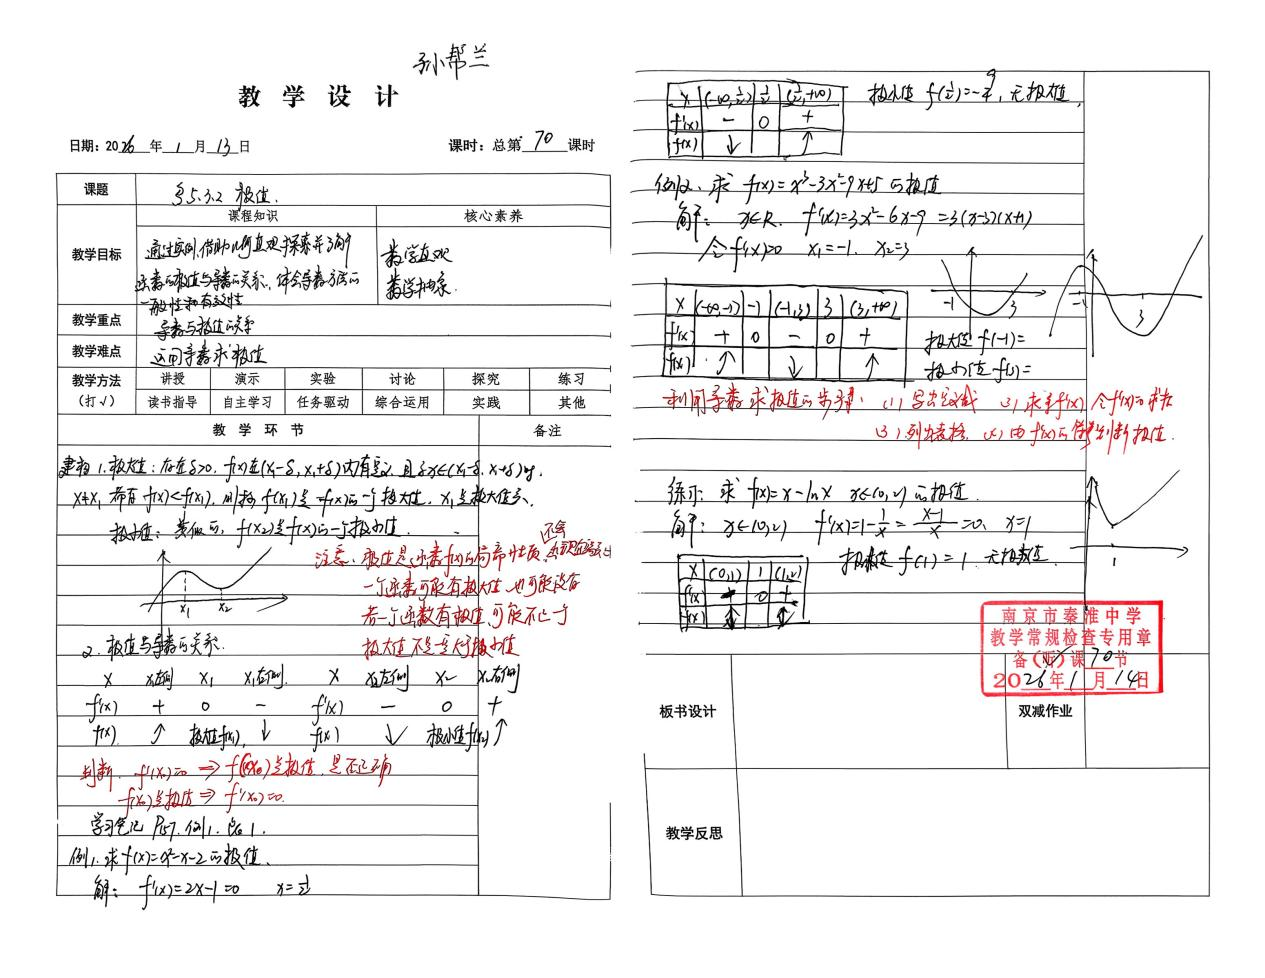 孙帮兰
教 学 设 计
日期：2026年1月13日
课时：总第70课时
课题
§5.3.2 极值.
教学目标
课程知识
核心素养
通过实例,借助几何直观探索并了解
函数的极值与导数的关系,体会导数方法的
一般性和有效性
数学直观
数学抽象.
教学重点
导数与极值的关系
教学难点
运用导数求极值
教学方法
（打√）
讲授 演示 实验 讨论 探究 练习
读书指导 自主学习 任务驱动 综合运用 实践 其他
教 学 环 节
备注
建构 1. 极大值：存在δ>0, f(x)在(x₁-δ, x₁+δ)内有定义, 且
x≠x₁ 都有 f(x)<f(x₁), 则称 f(x₁)是f(x)的一个极大值, x₁是极大值点.
极小值：类似可, f(x₂)是f(x)的一个极小值.
x₁ x₂
注意：极值是函数f(x)的局部性质,
一个函数可能有极大值, 也可能没有
若一个函数有极值,可能不止一个
极大值不一定大于极小值
2. 极值与导数的关系.
x x₁左侧 x₁ x₁右侧. x x₂左侧 x₂ x₂右侧
f'(x) + 0 - f'(x) - 0 +
f(x) ↑ 极大值f(x₁) ↓ f(x) ↓ 极小值f(x₂) ↑
判断. f'(x₀)=0 ⇒ f(x₀)是极值, 是否正确
f(x₀)是极值 ⇒ f'(x₀)=0.
学习笔记 P157. 例1.
例1. 求f(x)=x²-x-2的极值.
解： f'(x)=2x-1=0 x=1/2
x (-∞,1/2) 1/2 (1/2,+∞)
f'(x) - 0 +
f(x) ↓ ↑
极小值 f(1/2)=-9/4, 无极大值.
例2. 求 f(x)=x³-3x²-9x+5 的极值
解： x∈R. f'(x)=3x²-6x-9 =3(x-3)(x+1)
令f'(x)=0 x₁=-1. x₂=3
-1 3
-1 3
x (-∞,-1) -1 (-1,3) 3 (3,+∞)
f'(x) + 0 - 0 +
f(x) ↑ ↓ ↑
极大值 f(-1)=
极小值 f(3)=
利用导数求极值的步骤： (1) 写出定义域 (2) 求f'(x) 令f'(x)=0求根
(3) 列出表格, (4) 由f'(x)的符号判断极值.
练习： 求 f(x)=x-lnx x∈(0,2) 的极值.
解： x∈(0,2) f'(x)=1-1/x=(x-1)/x=0. x=1
1
x (0,1) 1 (1,2)
f'(x) 0 +
f(x)
f(1)=1.
南京市秦淮中学
教学常规检查专用章
备(听)课70节
2026年1月14日
板书设计
双减作业
教学反思